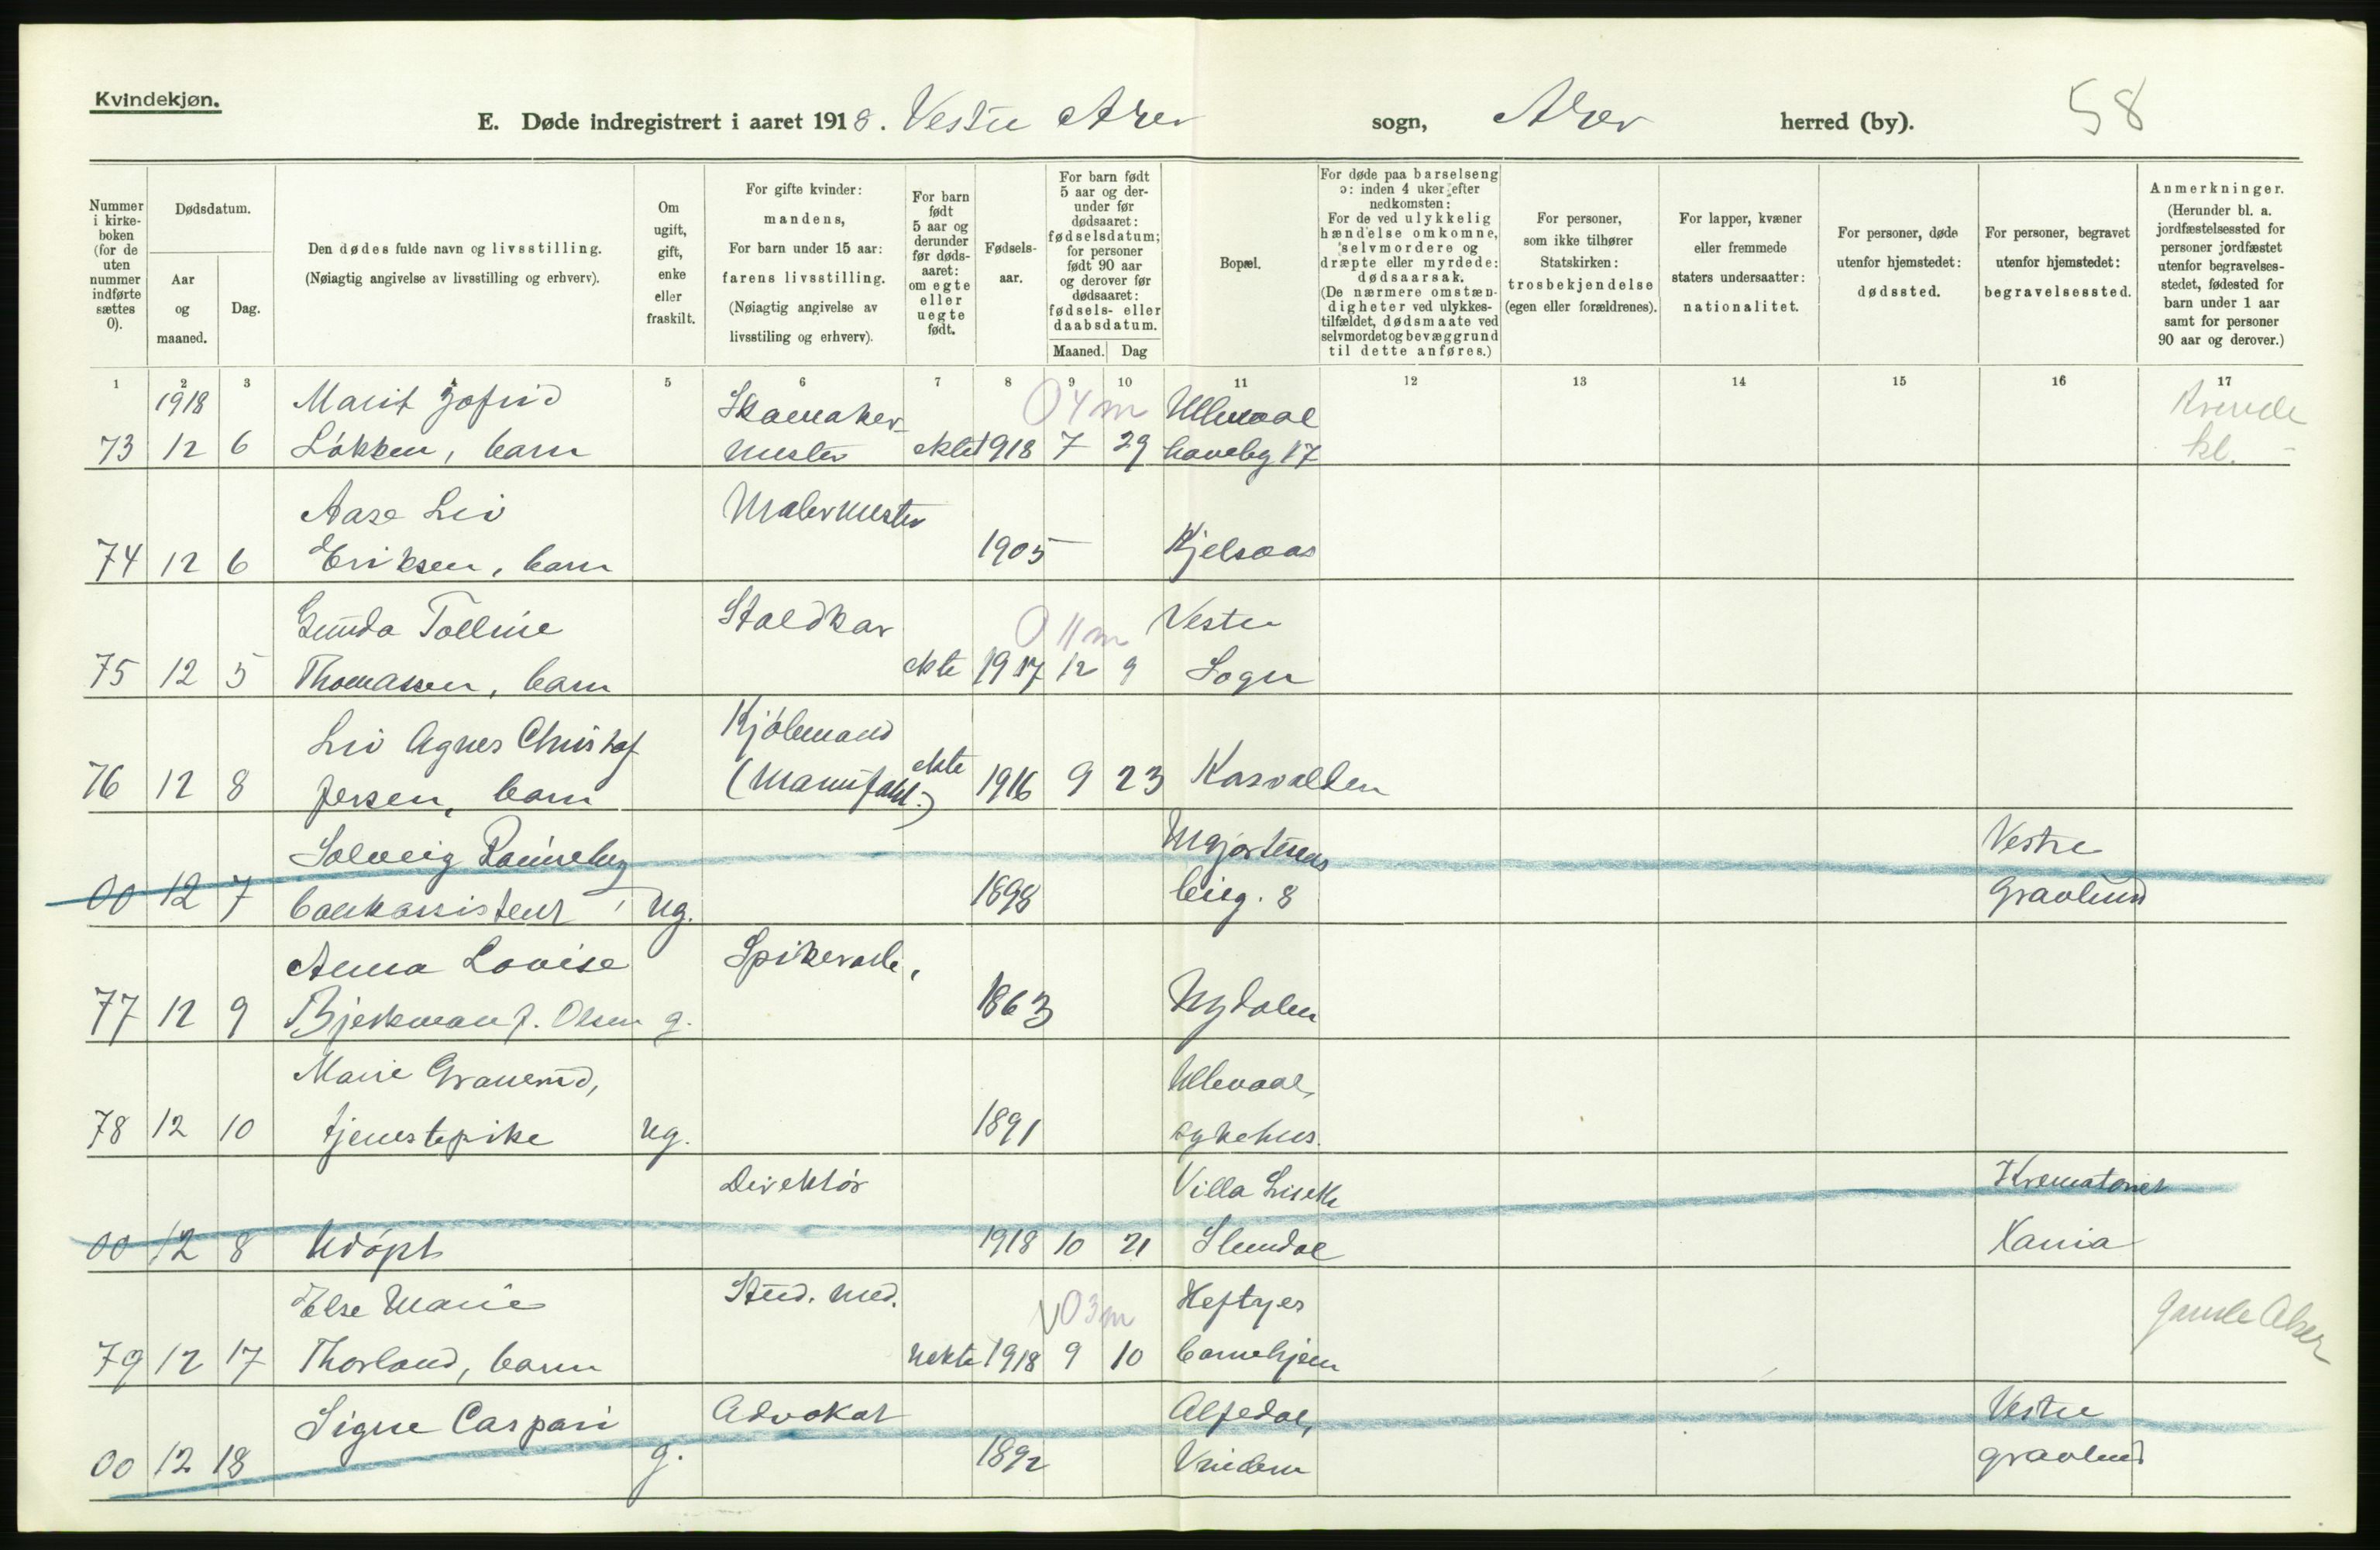 Kvindekjøn.
E. Døde indregistrert i aaret 1918. Vestre Aker sogn, Aker herred (by). 58
Nummer i kirke-boken (for de uten nummer indførte sættes 0).
Dødsdatum.
Aar og maaned.
Dag.
Den dødes fulde navn og livsstilling.
(Nøiagtig angivelse av livsstilling og erhverv).
Om ugift, gift, enke eller fraskilt.
For gifte kvinder: mandens,
For barn under 15 aar: farens livsstilling.
(Nøiagtig angivelse av livsstiling og erhverv).
For barn født 5 aar og derunder før døds-aaret: om egte eller uegte født.
Fødsels-aar.
For barn født 5 aar og der-under før dødsaaret: fødselsdatum; for personer født 90 aar og derover før dødsaaret: fødsels- eller daabsdatum.
Maaned. Dag
Bopæl.
For døde paa barselseng ɔ: inden 4 uker efter nedkomsten: For de ved ulykkelig hændelse omkomne, selvmordere og dræpte eller myrdede: dødsaarsak. (De nærmere omstæn-digheter ved ulykkes-tilfældet, dødsmaate ved selvmordet og bevæggrund til dette anføres.)
For personer, som ikke tilhører Statskirken: trosbekjendelse (egen eller forældrenes).
For lapper, kvæner eller fremmede staters undersaatter: nationalitet.
For personer, døde utenfor hjemstedet: dødssted.
For personer, begravet utenfor hjemstedet: begravelsessted.
Anmerkninger. (Herunder bl. a. jordfæstelsessted for personer jordfæstet utenfor begravelses-stedet, fødested for barn under 1 aar samt for personer 90 aar og derover.)
1 2 3 5 6 7 8 9 10 11 12 13 14 15 16 17
1918 Marit Gofrid Skomaker- 0 4 m Ullevaal
73 12 6 Løkken, barn mester ekte 1918 7 29 haveby 17 kl.
Aase Liv Malermester
74 12 6 Eriksen, barn 1905 Kjelsaas
Gunda Tolline Staldkar 0 11 m Vestre
75 12 5 Thomassen, barn ekte 1917 12 9 Sogn
Liv Agnes Christof Kjøbmand
76 12 8 Jersen, barn (Manufakt.) ekte 1916 9 23 Korsvolden
Solveig Vestre
00 12 7 bankassistent, ug. 1898 8 gravlund
Anna Lovise Spikerarb.,
77 12 9 Bjerkman f. Olsen g. 1863 Nydalen
Marie Granerud, Ullevaal
78 12 10 tjenestepike ug. 1891 sykehus.
Direktør Villa Krematoriet
00 12 8 Udøpt 1918 10 21 Slemdal Kania
Else Marie Stud. med. 0 3 m Heftyes Gamle Aker
79 12 17 Thorland, barn uekte 1918 9 10 barnehjem
Signe Caspari Advokat Vestre
00 12 18 g. 1892 Vinderen gravlund